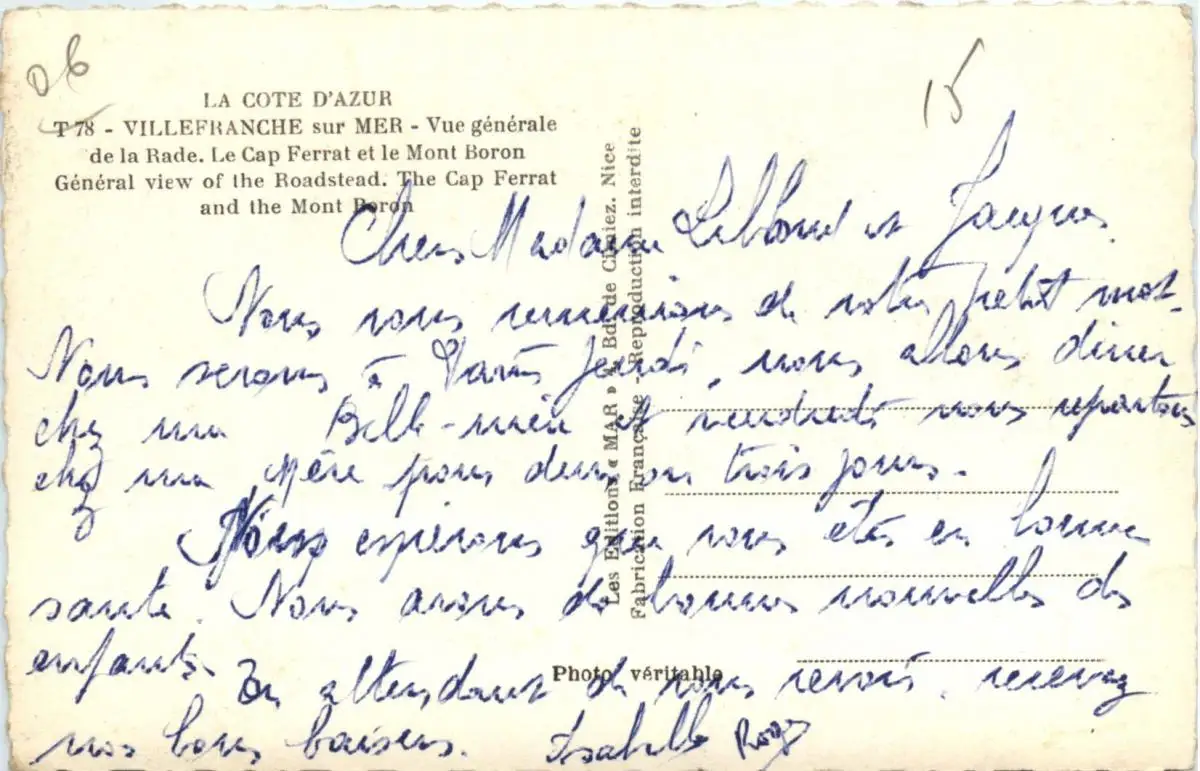 06
15
LA COTE D'AZUR
T 78 - VILLEFRANCHE sur MER - Vue générale
de la Rade. Le Cap Ferrat et le Mont Boron
Général view of the Roadstead. The Cap Ferrat
and the Mont Boron
Les Editions « MAR » Bd de Cimiez. Nice
Fabrication Française - Reproduction interdite
Chers Madame Leblond et Jacques
Nous vous remercions de votre petit mot.
Nous serons à Paris Jeudi, nous allons diner
chez ma Belle-mère et vendredi nous repartons
chez ma Mère pour deux ou trois jours.
Nous espérons que vous êtes en bonne
santé. Nous avons de bonnes nouvelles des
enfants.
En attendant de vous revoir, recevez
nos bons baisers. Isabelle
Photo véritable